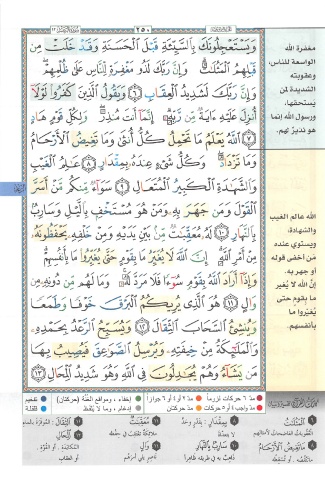 ٢٥٠
وَيَسْتَعْجِلُونَكَ بِالسَّيِّئَةِ قَبْلَ الْحَسَنَةِ وَقَدْ خَلَتْ مِن
قَبْلِهِمُ الْمَثُلَاتُ ۗ وَإِنَّ رَبَّكَ لَذُو مَغْفِرَةٍ لِّلنَّاسِ عَلَىٰ ظُلْمِهِمْ ۖ
وَإِنَّ رَبَّكَ لَشَدِيدُ الْعِقَابِ ٦ وَيَقُولُ الَّذِينَ كَفَرُوا لَوْلَا
أُنزِلَ عَلَيْهِ آيَةٌ مِّن رَّبِّهِ ۗ إِنَّمَا أَنتَ مُنذِرٌ ۖ وَلِكُلِّ قَوْمٍ هَادٍ
٧ اللَّهُ يَعْلَمُ مَا تَحْمِلُ كُلُّ أُنثَىٰ وَمَا تَغِيضُ الْأَرْحَامُ
وَمَا تَزْدَادُ ۖ وَكُلُّ شَيْءٍ عِندَهُ بِمِقْدَارٍ ٨ عَالِمُ الْغَيْبِ
وَالشَّهَادَةِ الْكَبِيرُ الْمُتَعَالِ ٩ سَوَاءٌ مِّنكُم مَّنْ أَسَرَّ
الْقَوْلَ وَمَن جَهَرَ بِهِ وَمَنْ هُوَ مُسْتَخْفٍ بِاللَّيْلِ وَسَارِبٌ
بِالنَّهَارِ ١٠ لَهُ مُعَقِّبَاتٌ مِّن بَيْنِ يَدَيْهِ وَمِنْ خَلْفِهِ يَحْفَظُونَهُ
مِنْ أَمْرِ اللَّهِ ۗ إِنَّ اللَّهَ لَا يُغَيِّرُ مَا بِقَوْمٍ حَتَّىٰ يُغَيِّرُوا مَا بِأَنفُسِهِمْ ۗ
وَإِذَا أَرَادَ اللَّهُ بِقَوْمٍ سُوءًا فَلَا مَرَدَّ لَهُ ۚ وَمَا لَهُم مِّن دُونِهِ مِن
وَالٍ ١١ هُوَ الَّذِي يُرِيكُمُ الْبَرْقَ خَوْفًا وَطَمَعًا
وَيُنشِئُ السَّحَابَ الثِّقَالَ ١٢ وَيُسَبِّحُ الرَّعْدُ بِحَمْدِهِ
وَالْمَلَائِكَةُ مِنْ خِيفَتِهِ وَيُرْسِلُ الصَّوَاعِقَ فَيُصِيبُ بِهَا
مَن يَشَاءُ وَهُمْ يُجَادِلُونَ فِي اللَّهِ وَهُوَ شَدِيدُ الْمِحَالِ ١٣
مغفرة الله
الواسعة للناس،
وعقوبته
الشديدة لمن
يستحقها،
ورسول الله إنما
هو نذير لهم.
الله عالم الغيب
والشهادة،
ويستوي عنده
من أخفى قوله
أو جهر به.
إن الله لا يغير
ما بقوم حتى
يغيروا ما
بأنفسهم.
مد ٦ حركات لزوماً
مد ٢ أو ٤ أو ٦ جوازاً
إخفاء، ومواقع الغُنَّة (حركتان)
تفخيم
مد حركتان
إدغام، وما لا يُلفظ
قلقلة